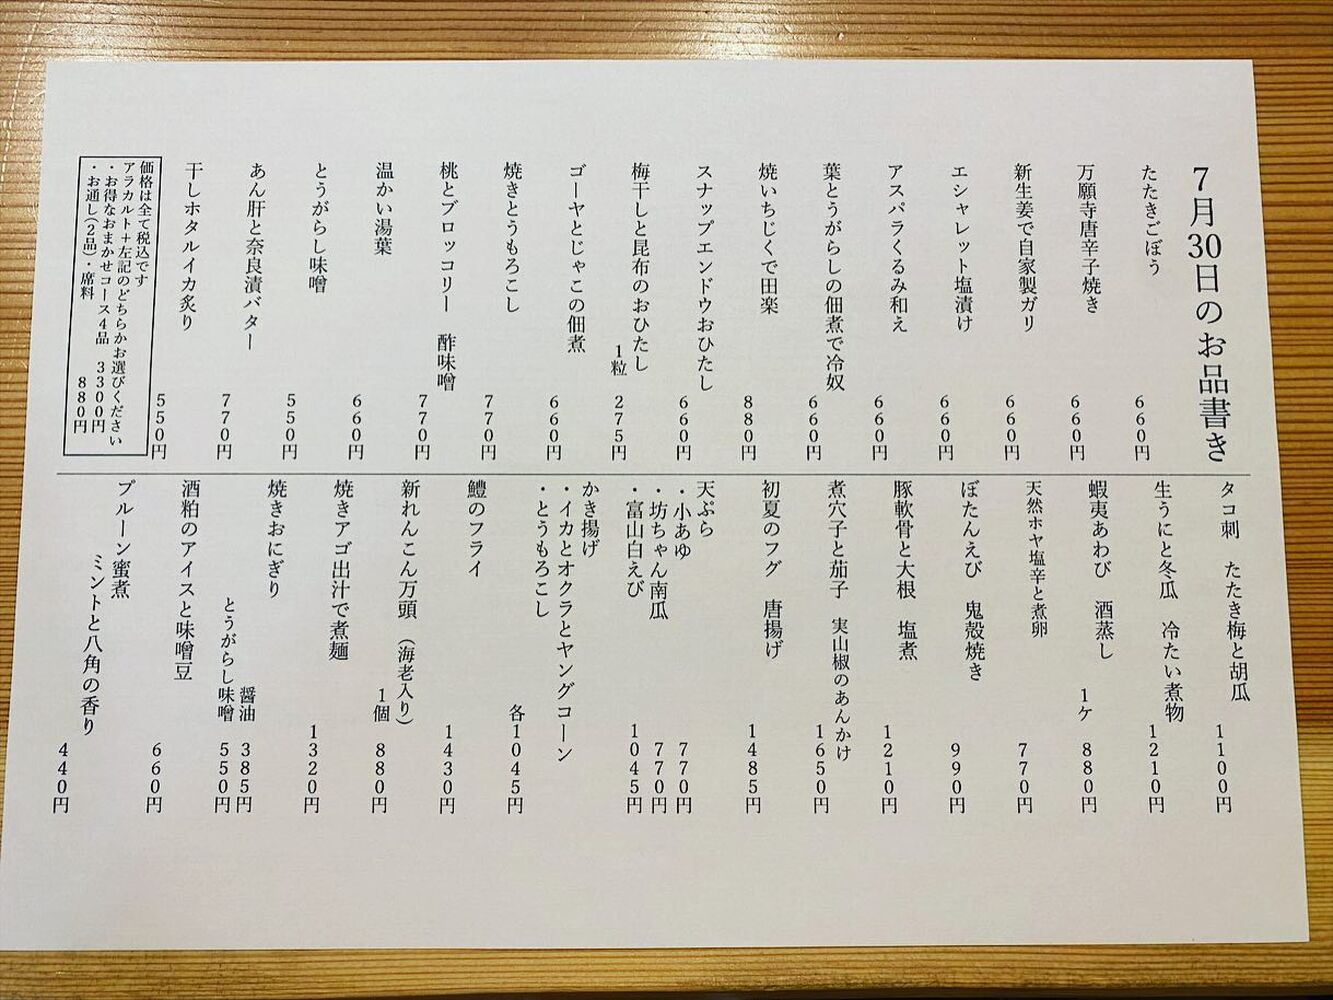 7月30日のお品書き
たたきごぼう 660円
万願寺唐辛子焼き 660円
新生姜で自家製ガリ 660円
エシャレット塩漬け 660円
アスパラくるみ和え 660円
葉とうがらしの佃煮で冷奴 660円
焼いちじくで田楽 880円
スナップエンドウおひたし 660円
梅干しと昆布のおひたし 1粒 275円
ゴーヤとじゃこの佃煮 660円
焼きとうもろこし 770円
桃とブロッコリー 酢味噌 770円
温かい湯葉 660円
とうがらし味噌 550円
あん肝と奈良漬バター 770円
干しホタルイカ炙り 550円
価格は全て税込です
アラカルト+左記のどちらかお選びください
・お得なおまかせコース4品 3300円
・お通し(2品)・席料 880円
タコ刺 たたき梅と胡瓜 1100円
生うにと冬瓜 冷たい煮物 1210円
蝦夷あわび 酒蒸し 1ケ 880円
天然ホヤ塩辛と煮卵 770円
ぼたんえび 鬼殻焼き 990円
豚軟骨と大根 塩煮 1210円
煮穴子と茄子 実山椒のあんかけ 1650円
初夏のフグ 唐揚げ 1485円
天ぷら
・小あゆ 770円
・坊ちゃん南瓜 770円
・富山白えび 1045円
かき揚げ
・イカとオクラとヤングコーン
・とうもろこし 各1045円
鱧のフライ 1430円
新れんこん万頭 (海老入り) 1個 880円
焼きアゴ出汁で煮麺 1320円
焼きおにぎり 醤油 385円
とうがらし味噌 550円
酒粕のアイスと味噌豆 660円
プルーン蜜煮
ミントと八角の香り 440円